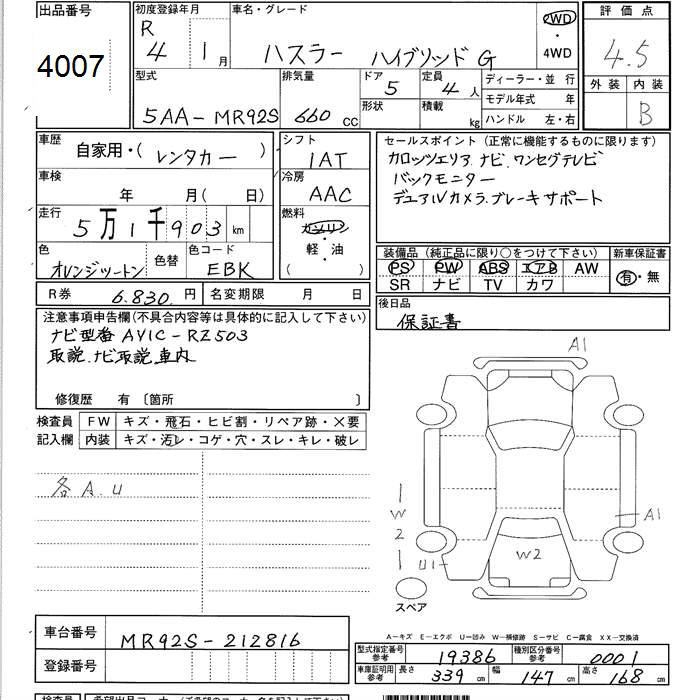 出品番号
4007
初度登録年月
R 4年 1月
車名・グレード
ハスラー ハイブリッド G
2WD
・
4WD
評価点
4.5
外装 内装
B
型式
5AA-MR92S
排気量
660 CC
ドア
5
形状
定員
4人
積載
kg
ディーラー・並 行
モデル年式 年
ハンドル 左・右
車歴
自家用・( レンタカー )
シフト
IAT
車検
年 月( 日)
冷房
AAC
走行
5万1千903km
燃料
ガソリン
・
軽・油
( )
色
オレンジツートン
色替
色コード
EBK
R券 6.830.円
名変期限 月 日
セールスポイント(正常に機能するものに限ります)
カロッツエリア.ナビ.ワンセグテレビ
バックモニター
デュアルカメラ.ブレーキサポート
装備品(純正品に限り○をつけて下さい)
PS PW ABS エアB AW
SR ナビ TV カワ
新車保証書
有・無
後日品
保証書
注意事項申告欄(不具合内容等は具体的に記入して下さい)
ナビ型番 AVIC-RZ503
取説.ナビ取説車内
修復歴 有 〔箇所 〕
検査員
記入欄
FW キズ・飛石・ヒビ割・リペア跡・×要
内装 キズ・汚レ・コゲ・穴・スレ・キレ・破レ
各 A.U
A1
W
2
U1
A1
W2
スペア
車台番号 MR92S-212816
登録番号
A-キズ E-エクボ U-凹み W-補修跡 S-サビ C-腐食 XX-交換済
型式指定番号
参考
19386
種別区分番号
参考
0001
車庫証明用
参考
長さ 339cm
幅 147cm
高さ 168cm